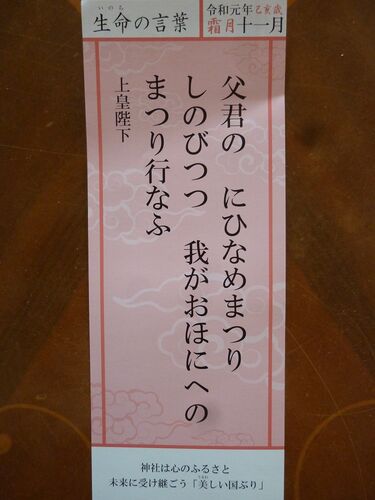 生命の言葉
いのち
令和元年己亥歳
霜月十一月
父君の　にひなめまつり
しのびつつ　我がおほにへの
まつり行なふ
上皇陛下
神社は心のふるさと
未来に受け継ごう「美しい国ぶり」
うるわ